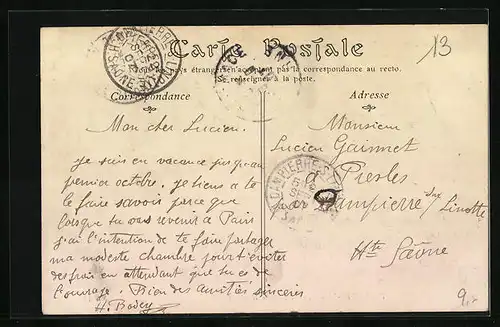 Carte Postale
pays étrangers n'acceptent pas la correspondance au recto.
Se renseigner à la poste.
Correspondance
Adresse
13
Mon cher Lucien.
je suis en vacance jusqu'au
premier octobre. je tiens à te
le faire savoir parce que
lorsque tu vas revenir à Paris
j'ai l'intention de te faire partager
ma modeste chambre pour t'éviter
des frais en attendant que tu es de
l'ouvrage. Bien des amitiés sincères
H. Bodey
Monsieur
Lucien
Presles
par Dampierre sur Linotte
Hte Saône
DAMPIERRE-S-LINOTTE
9.-